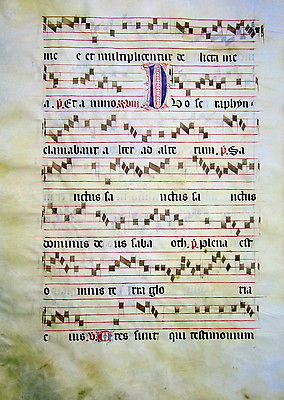 me e et multiplicentur de licta me
a. p. Et a nimo xxviii. Duo se raphyn
clamabant a lter ad alte rum. p. Sa
nctus sa nctus sa nctus
dominus de us saba oth. p. plena est
o mnis te rra glo ria
e ius. v. Tres sunt qui testimonium